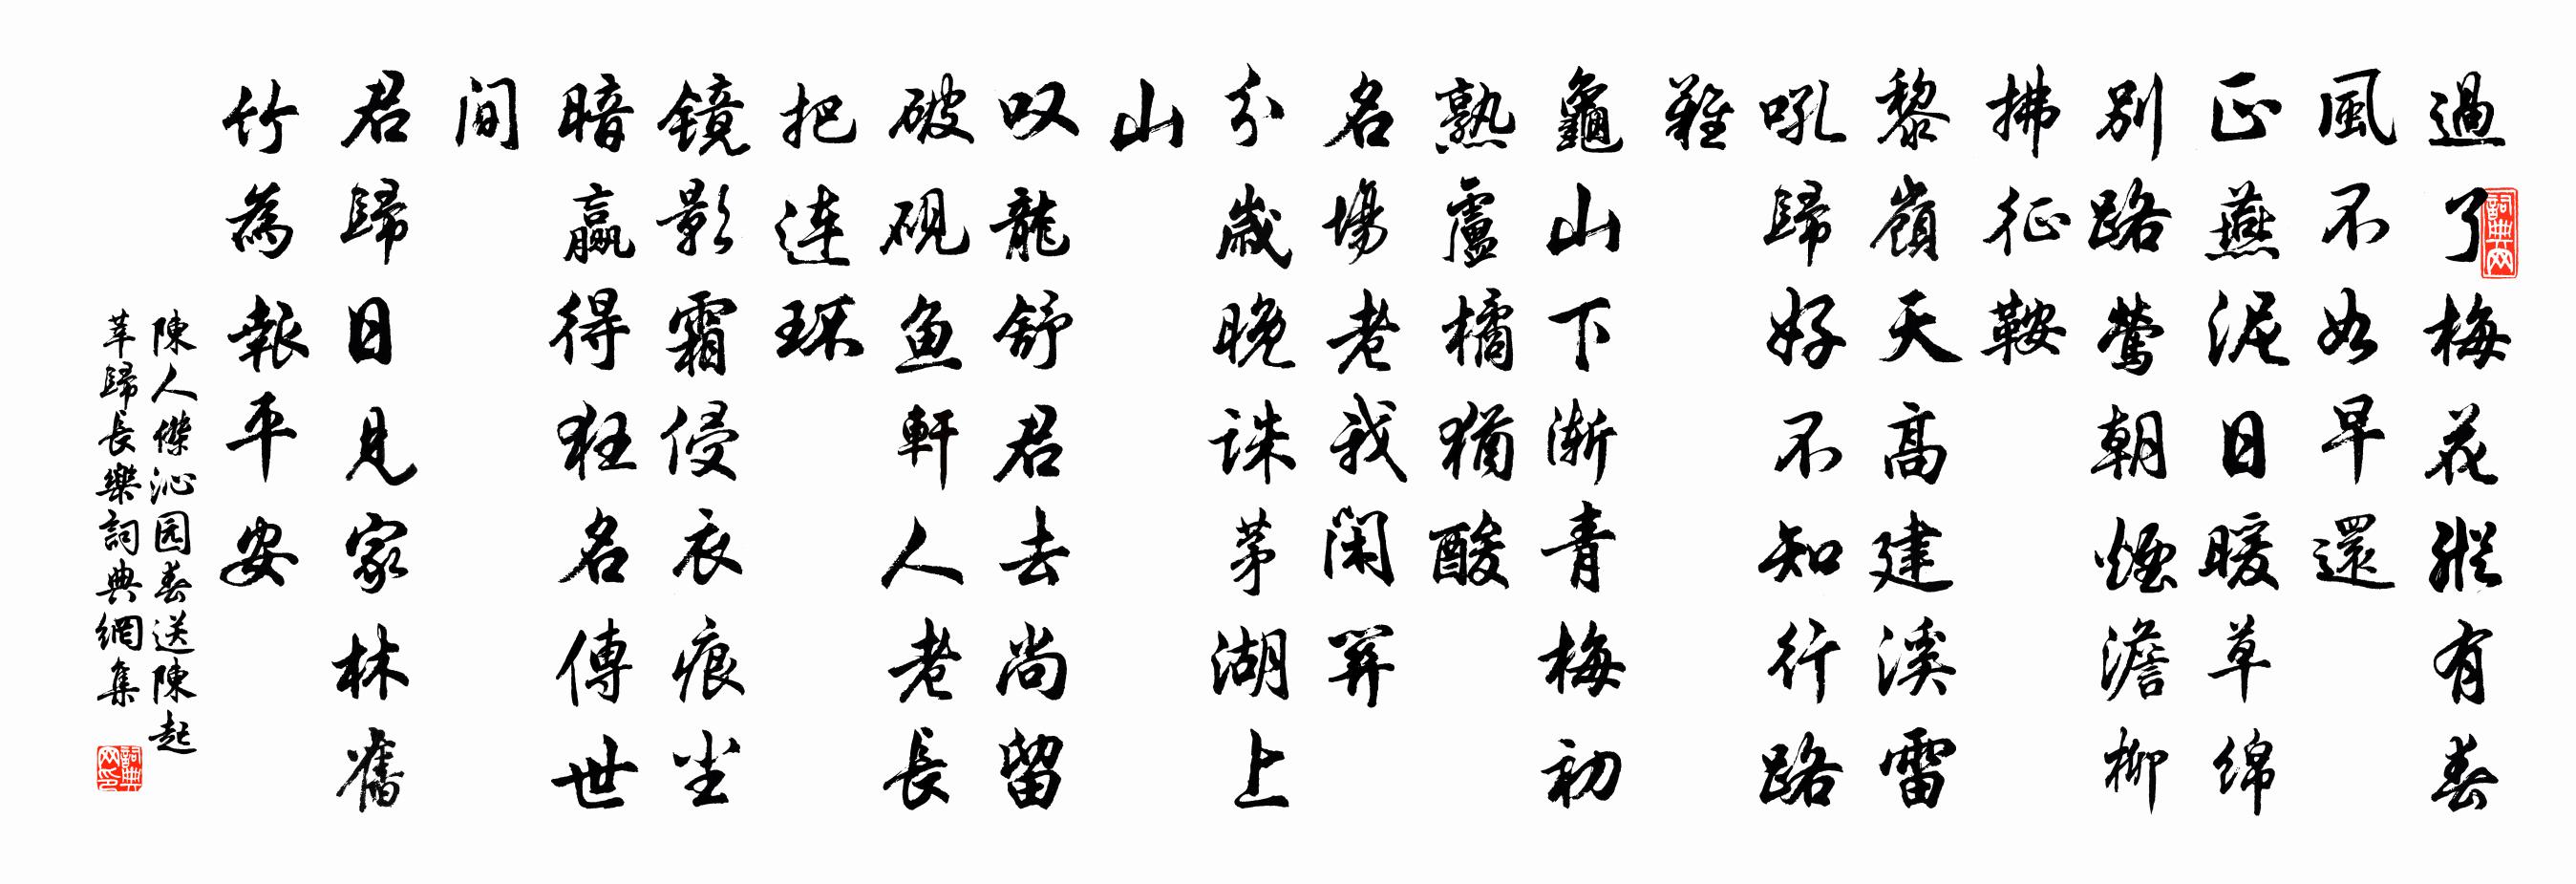 過了梅花縱有春
風不如早還
正燕泥日暖草綿
別路鶯朝煙澹柳
拂征鞍
黎嶺天高建溪雷
吼歸好不知行路
難
龜山下漸青梅初
熟盧橘猶酸
名場老我閑關
分歲晚誅茅湖上
山
叹龍舒君去尚留
破硯魚軒人老長
把连环
镜影霜侵衣痕尘
暗赢得狂名傳世
间
君歸日見家林舊
竹為報平安
陳人傑沁园春送陳起
莘歸長樂詞典網集
詞典网
詞典网印